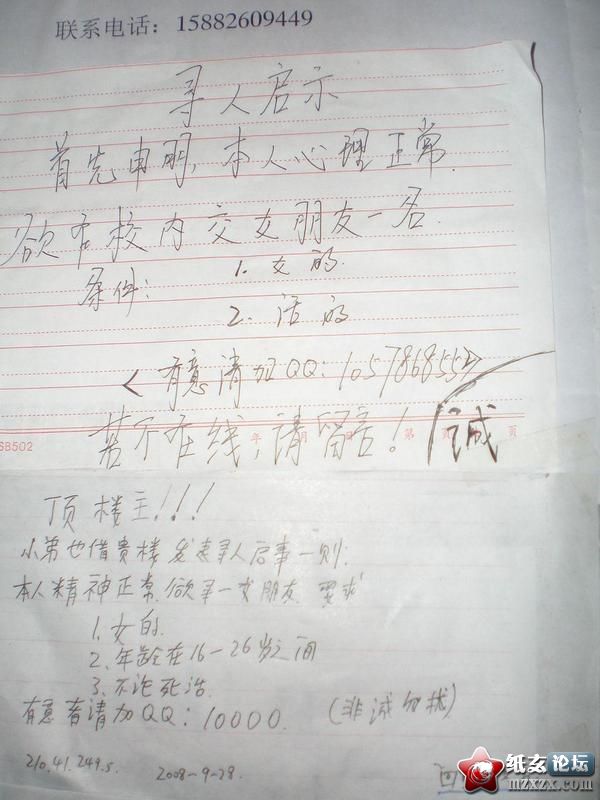 联系电话：15882609449
寻人启示
首先申明，本人心理正常.
欲在校内交女朋友一名.
条件：1. 女的.
2. 活的
<有意请加QQ：105786855>
68502
年 月 日 第 页 页
若不在线，请留言！诚
顶楼主！！！
小弟也借贵楼发表寻人启事一则：
本人精神正常，欲寻一女朋友，要求
1. 女的.
2. 年龄在16-26岁之间
3. 不论死活.
有意者请加QQ：10000. (非诚勿扰)
210.41.249.5. 2008-9-28.
回
纸玄论坛
mzxzx.com